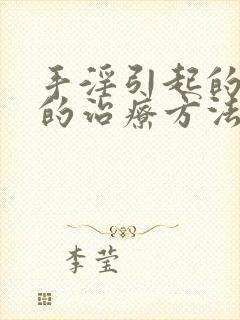 手淫引起的
的治疗方法
李莹